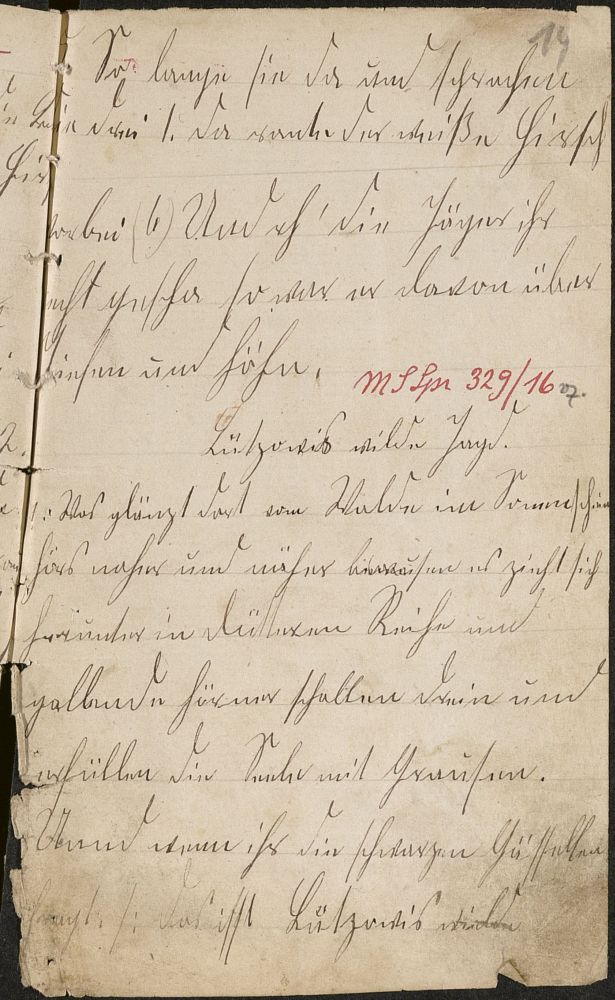 14
So lange sie da und sprachen
die drei /: da rante der weiße Hirsch
vorbei (6) Und eh' die Jäger ihn
recht gesehn so war er davon über
Tiefen und Höhn.
MSSpr 329/16
Lützowis wilde Jagd.
1: Was glänzt dort vom Walde im Sonnenschein
hörs naher und näher brausen es zieht sich
herunter in düsteren Reihe und
gellende Hörner schallen drein und
erfüllen die Seele mit Grausen.
Unnd wenn ihr die schwarzen Gesellen
fragt: /: das isst Lützowis wilde